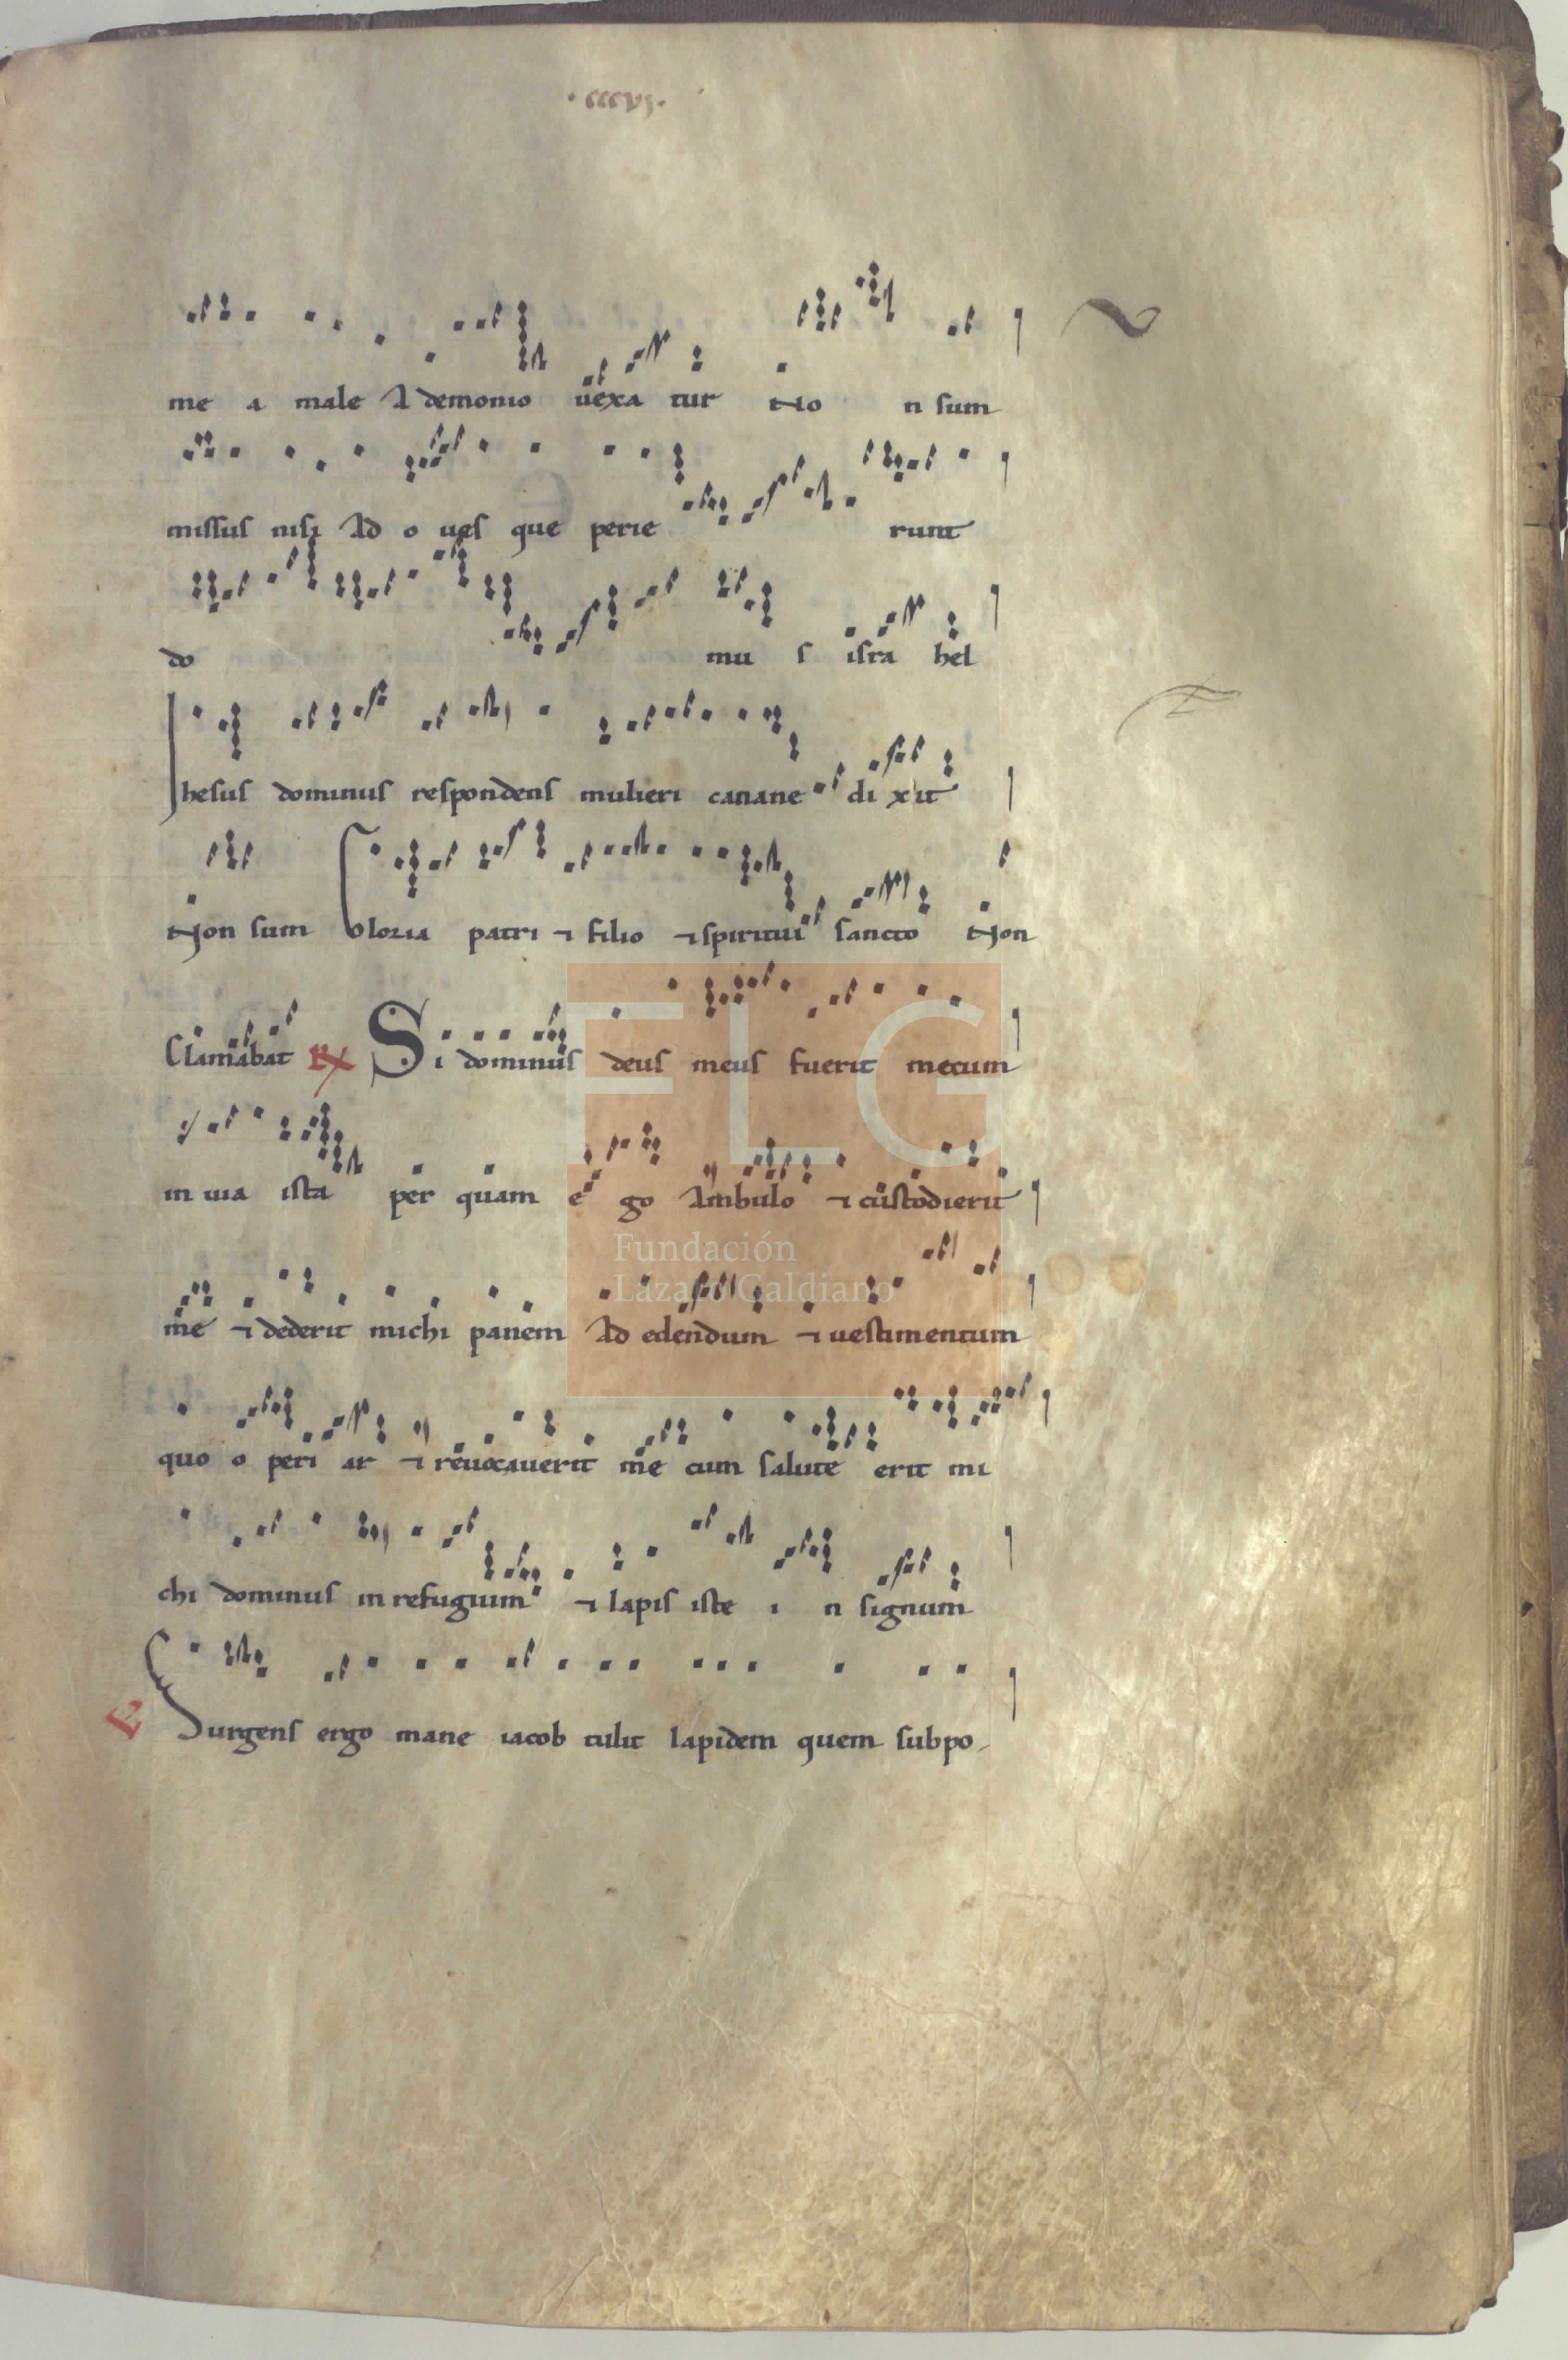 · cccvj ·
me a male A demonio vexa tur No n sum
missus nisi Ad o ves que perie runt
do mu s isra hel
Ihesus dominus respondens mulieri canane dixit
Non sum Gloria patri ⁊ filio ⁊ spiritui sancto Non
Clamabat R Si dominus deus meus fuerit mecum
in uia ista per quam e go Ambulo ⁊ custodierit
me ⁊ dederit michi panem Ad edendum ⁊ uestimentum
quo o peri ar ⁊ reuocauerit me cum salute erit mi
chi dominus in refugium ⁊ lapis iste i n signum
Surgens ergo mane iacob tulit lapidem quem subpo
FLG
Fundación
Lázaro Galdiano